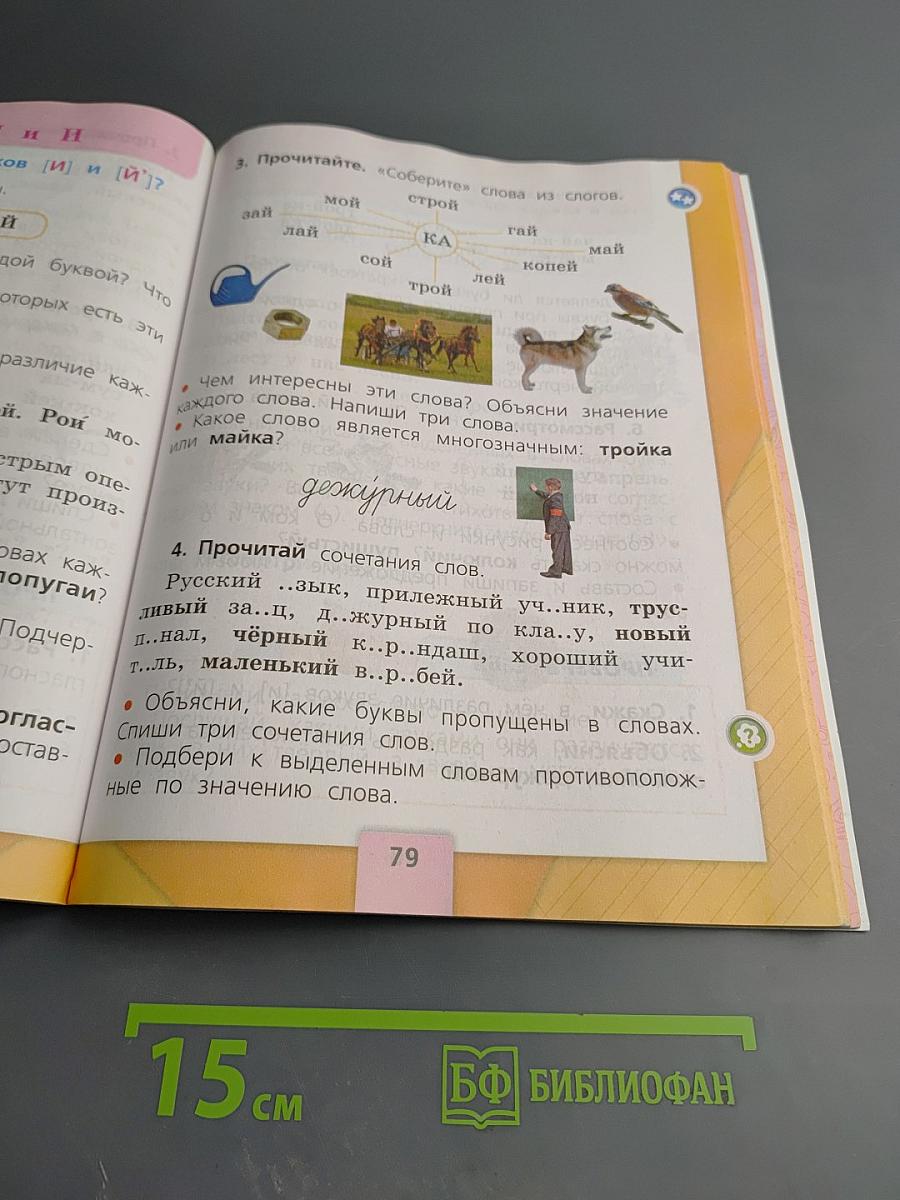 и Н
ков [И] и [Й']?
Й
дой буквой? Что
оторых есть эти
различие каж-
й. Рой мо-
стрым опе-
гут произ-
овах каж-
попугаи?
Подчер-
оглас-
остав-
3. Прочитайте. «Соберите» слова из слогов.
мой строй
зай гай
лай КА май
сой копей
трой лей
• Чем интересны эти слова? Объясни значение
каждого слова. Напиши три слова.
• Какое слово является многозначным: тройка
или майка?
дежу́рный
4. Прочитай сочетания слов.
Русский ..зык, прилежный уч..ник, трус-
ливый за..ц, д..журный по кла..у, новый
п..нал, чёрный к..р..ндаш, хороший учи-
т..ль, маленький в..р..бей.
• Объясни, какие буквы пропущены в словах.
Спиши три сочетания слов.
• Подбери к выделенным словам противополож-
ные по значению слова.
79
15 см
БФ БИБЛИОФАН